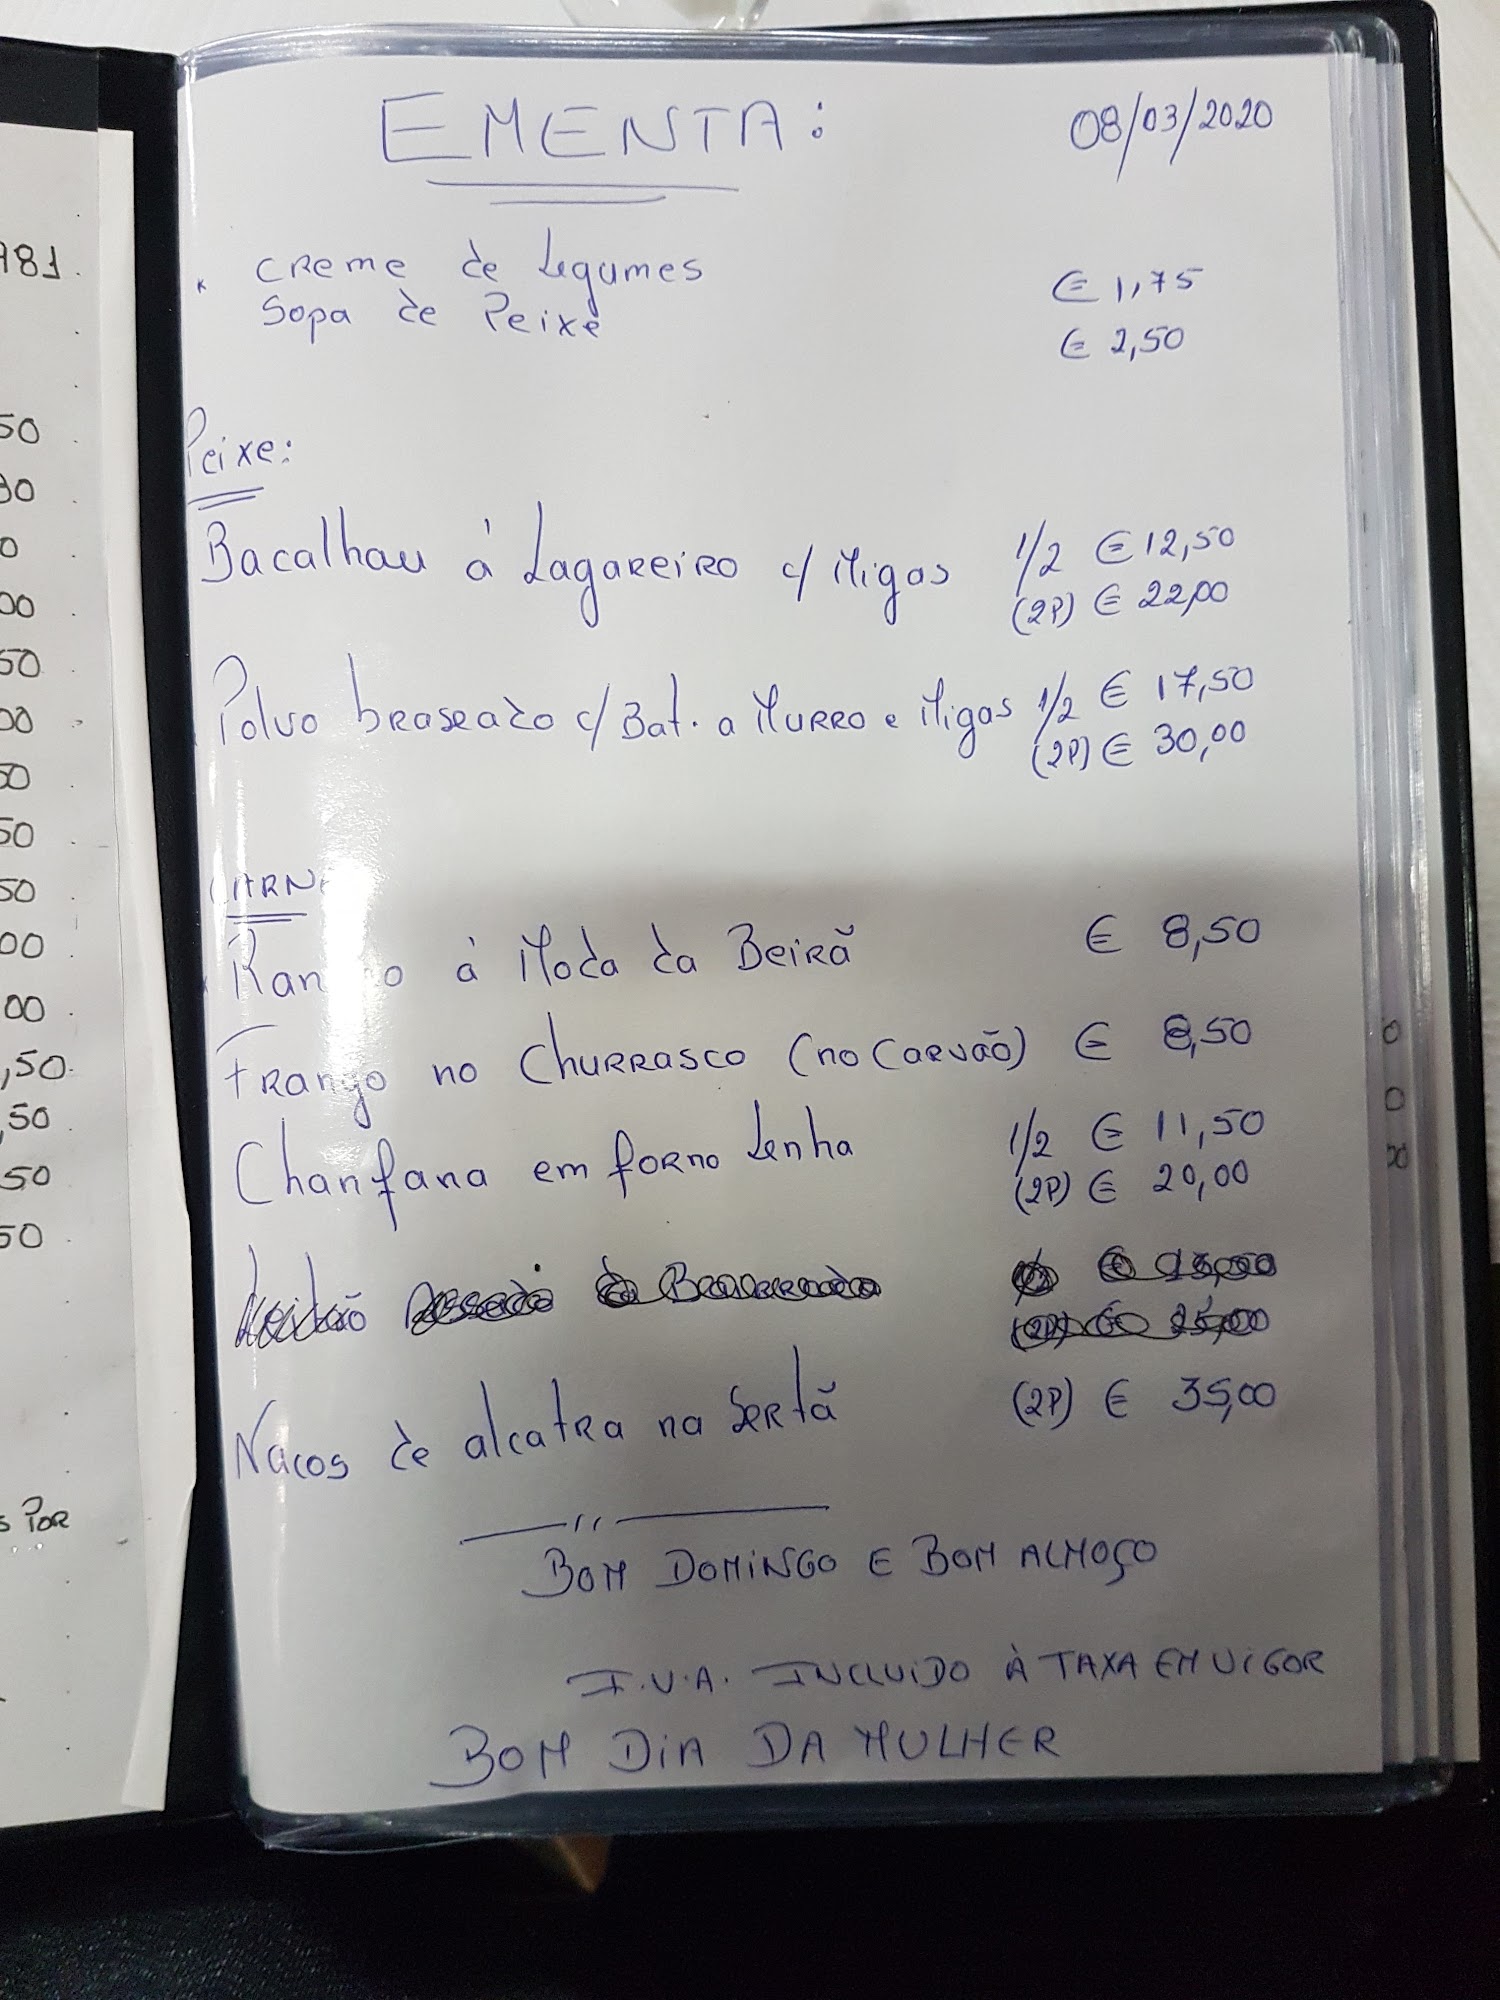 981.
50
30
0
00
50
00
50
50
50
00
00.
,50.
,50
50
50
s POR
EMENTA: 08/03/2020
creme de Legumes € 1,75
Sopa de Peixe € 2,50
Peixe:
Bacalhau á Lagareiro c/ Migas 1/2 € 12,50
(2P) € 22,00
Polvo braseado c/ Bat. a Murro e Migas 1/2 € 17,50
(2P) € 30,00
CARN
Ran o á Moda da Beirã € 8,50
Frango no Churrasco (no Carvão) € 8,50
Chanfana em forno Lenha 1/2 € 11,50
(2P) € 20,00
Nacos de alcatra na Sertã (2P) € 35,00
BOM DOMINGO E BOM ALMOÇO
I.V.A. INCLUIDO À TAXA EM VIGOR
BOM DIA DA MULHER